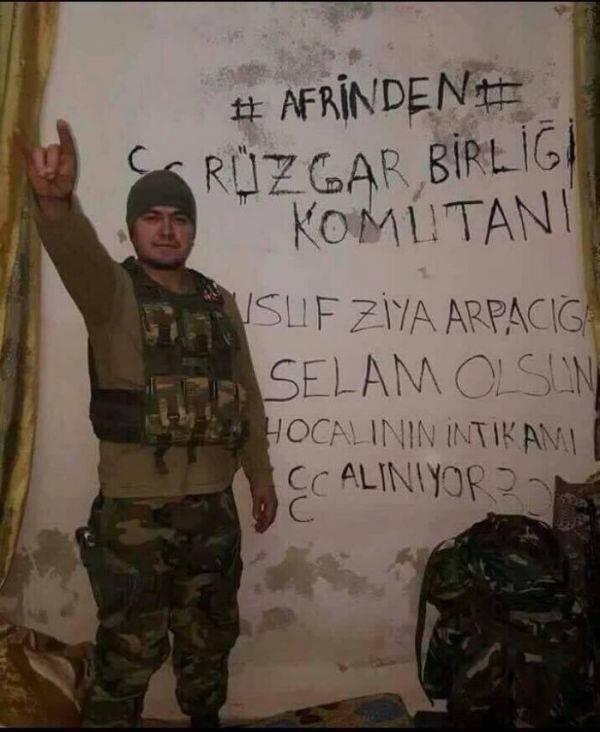 # AFRİNDEN #
RÜZGAR BİRLİĞİ
KOMUTANI
USUF ZİYA ARPACIĞA
SELAM OLSUN
HOCALININ İNTİKAMI
ALINIYOR